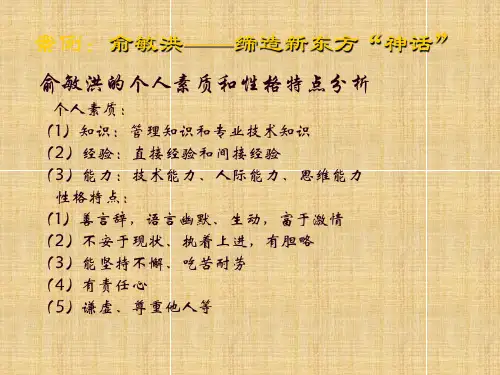 案例：俞敏洪——缔造新东方“神话”
俞敏洪的个人素质和性格特点分析
个人素质：
(1) 知识：管理知识和专业技术知识
(2) 经验：直接经验和间接经验
(3) 能力：技术能力、人际能力、思维能力
性格特点：
(1) 善言辞，语言幽默、生动，富于激情
(2) 不安于现状、执着上进，有胆略
(3) 能坚持不懈、吃苦耐劳
(4) 有责任心
(5) 谦虚、尊重他人等